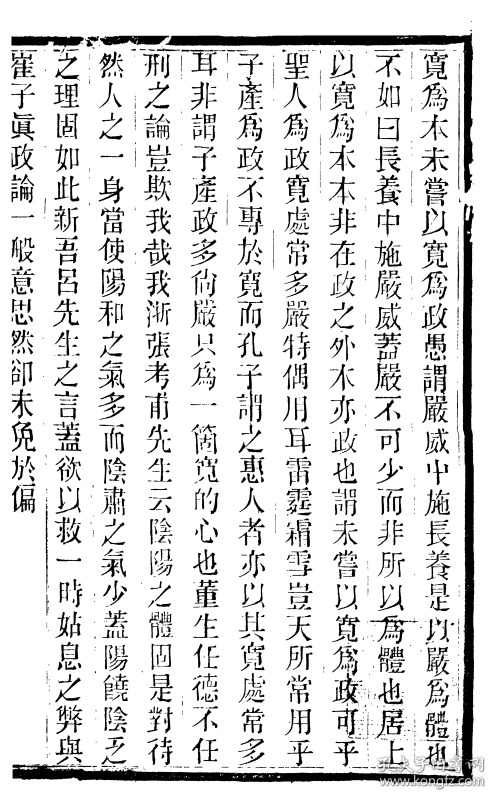 寬爲本未嘗以寬爲政愚謂嚴威中施長養是以嚴爲體也
不如曰長養中施嚴威蓋嚴不可少而非所以爲體也居上
以寬爲本本非在政之外本亦政也謂未嘗以寬爲政可乎
聖人爲政寬處常多嚴特偶用耳雷霆霜雪豈天所常用乎
子產爲政不專於寬而孔子謂之惠人者亦以其寬處常多
耳非謂子產政多尙嚴只爲一箇寬的心也董生任德不任
刑之論豈欺我哉我浙張考甫先生云陰陽之體固是對待
然人之一身當使陽和之氣多而陰肅之氣少蓋陽饒陰乏
之理固如此新吾呂先生之言蓋欲以救一時姑息之弊與
崔子眞政論一般意思然卻未免於偏
孔夫子旧书网
www.kongfz.com